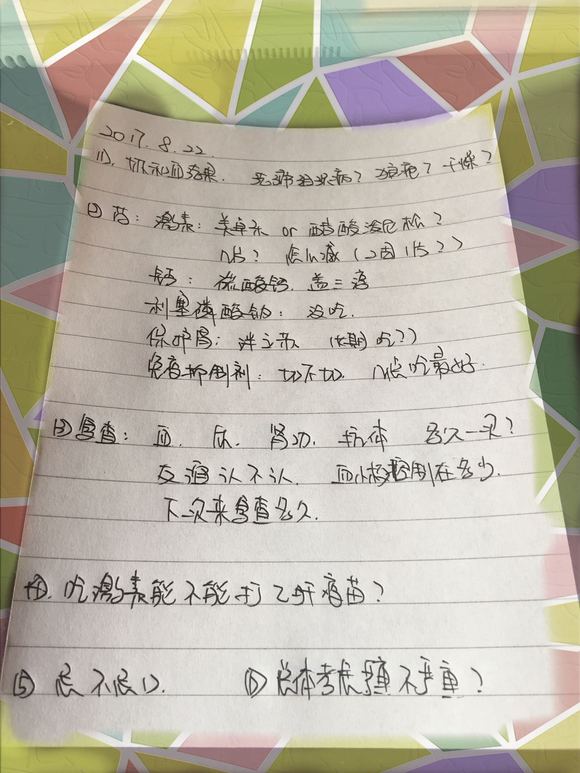 2017.8.22
(1). 切和血结果. 无 ? 狼疮? 干燥?
(2) 药: 激素: 美卓乐 or 醋酸泼尼松?
几片? 怎么减 (2周1片??)
钙: 碳酸钙. 盖三淳
利塞磷酸钠: 没吃.
保护胃: 泮立苏 (长期吃??)
免疫抑制剂: 加不加. 几点吃最好.
(3) 复查: 血. 尿. 肾功. 抗体 多久一次?
友谊认不认. 血小板控制在多少.
下一次来复查多久.
(4). 吃激素能不能打乙肝疫苗?
(5) 忌不忌口. (6) 总体考虑重不严重?